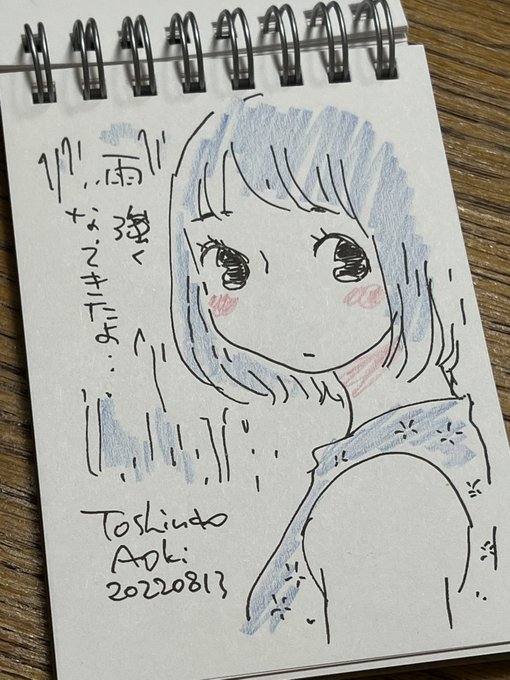 雨強く
なってきたよ…
Toshinao
Aoki
20220813